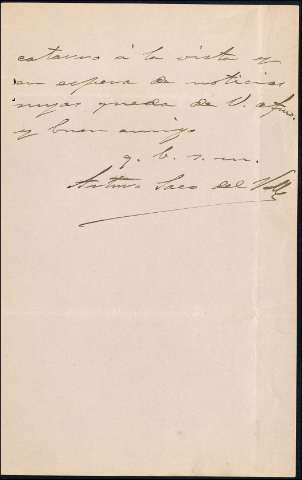 estamos á la vista y
en espera de noticias
suyas queda de V. afmo.
y buen amigo
q. b. s. m.
Arturo Saco del Valle